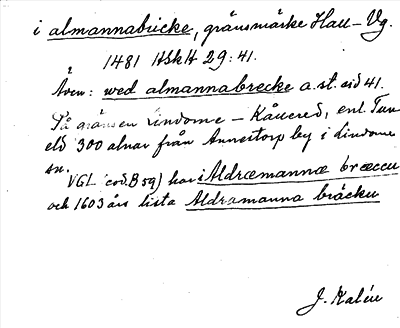 i almannabricke, gränsmärke Hall-Vg.
1481 HSkH 29:41.
Även: wed almannabrecke a.st. sid 41.
På gränsen Lindome - Kållered, enl. Tun
eld 300 alnar från Annestorp by i Lindome
sn.
VGL (cod. B 59) har i Aldræmannæ bræccu
och 1603 års lista Aldramanna bräcku
J. Kalén